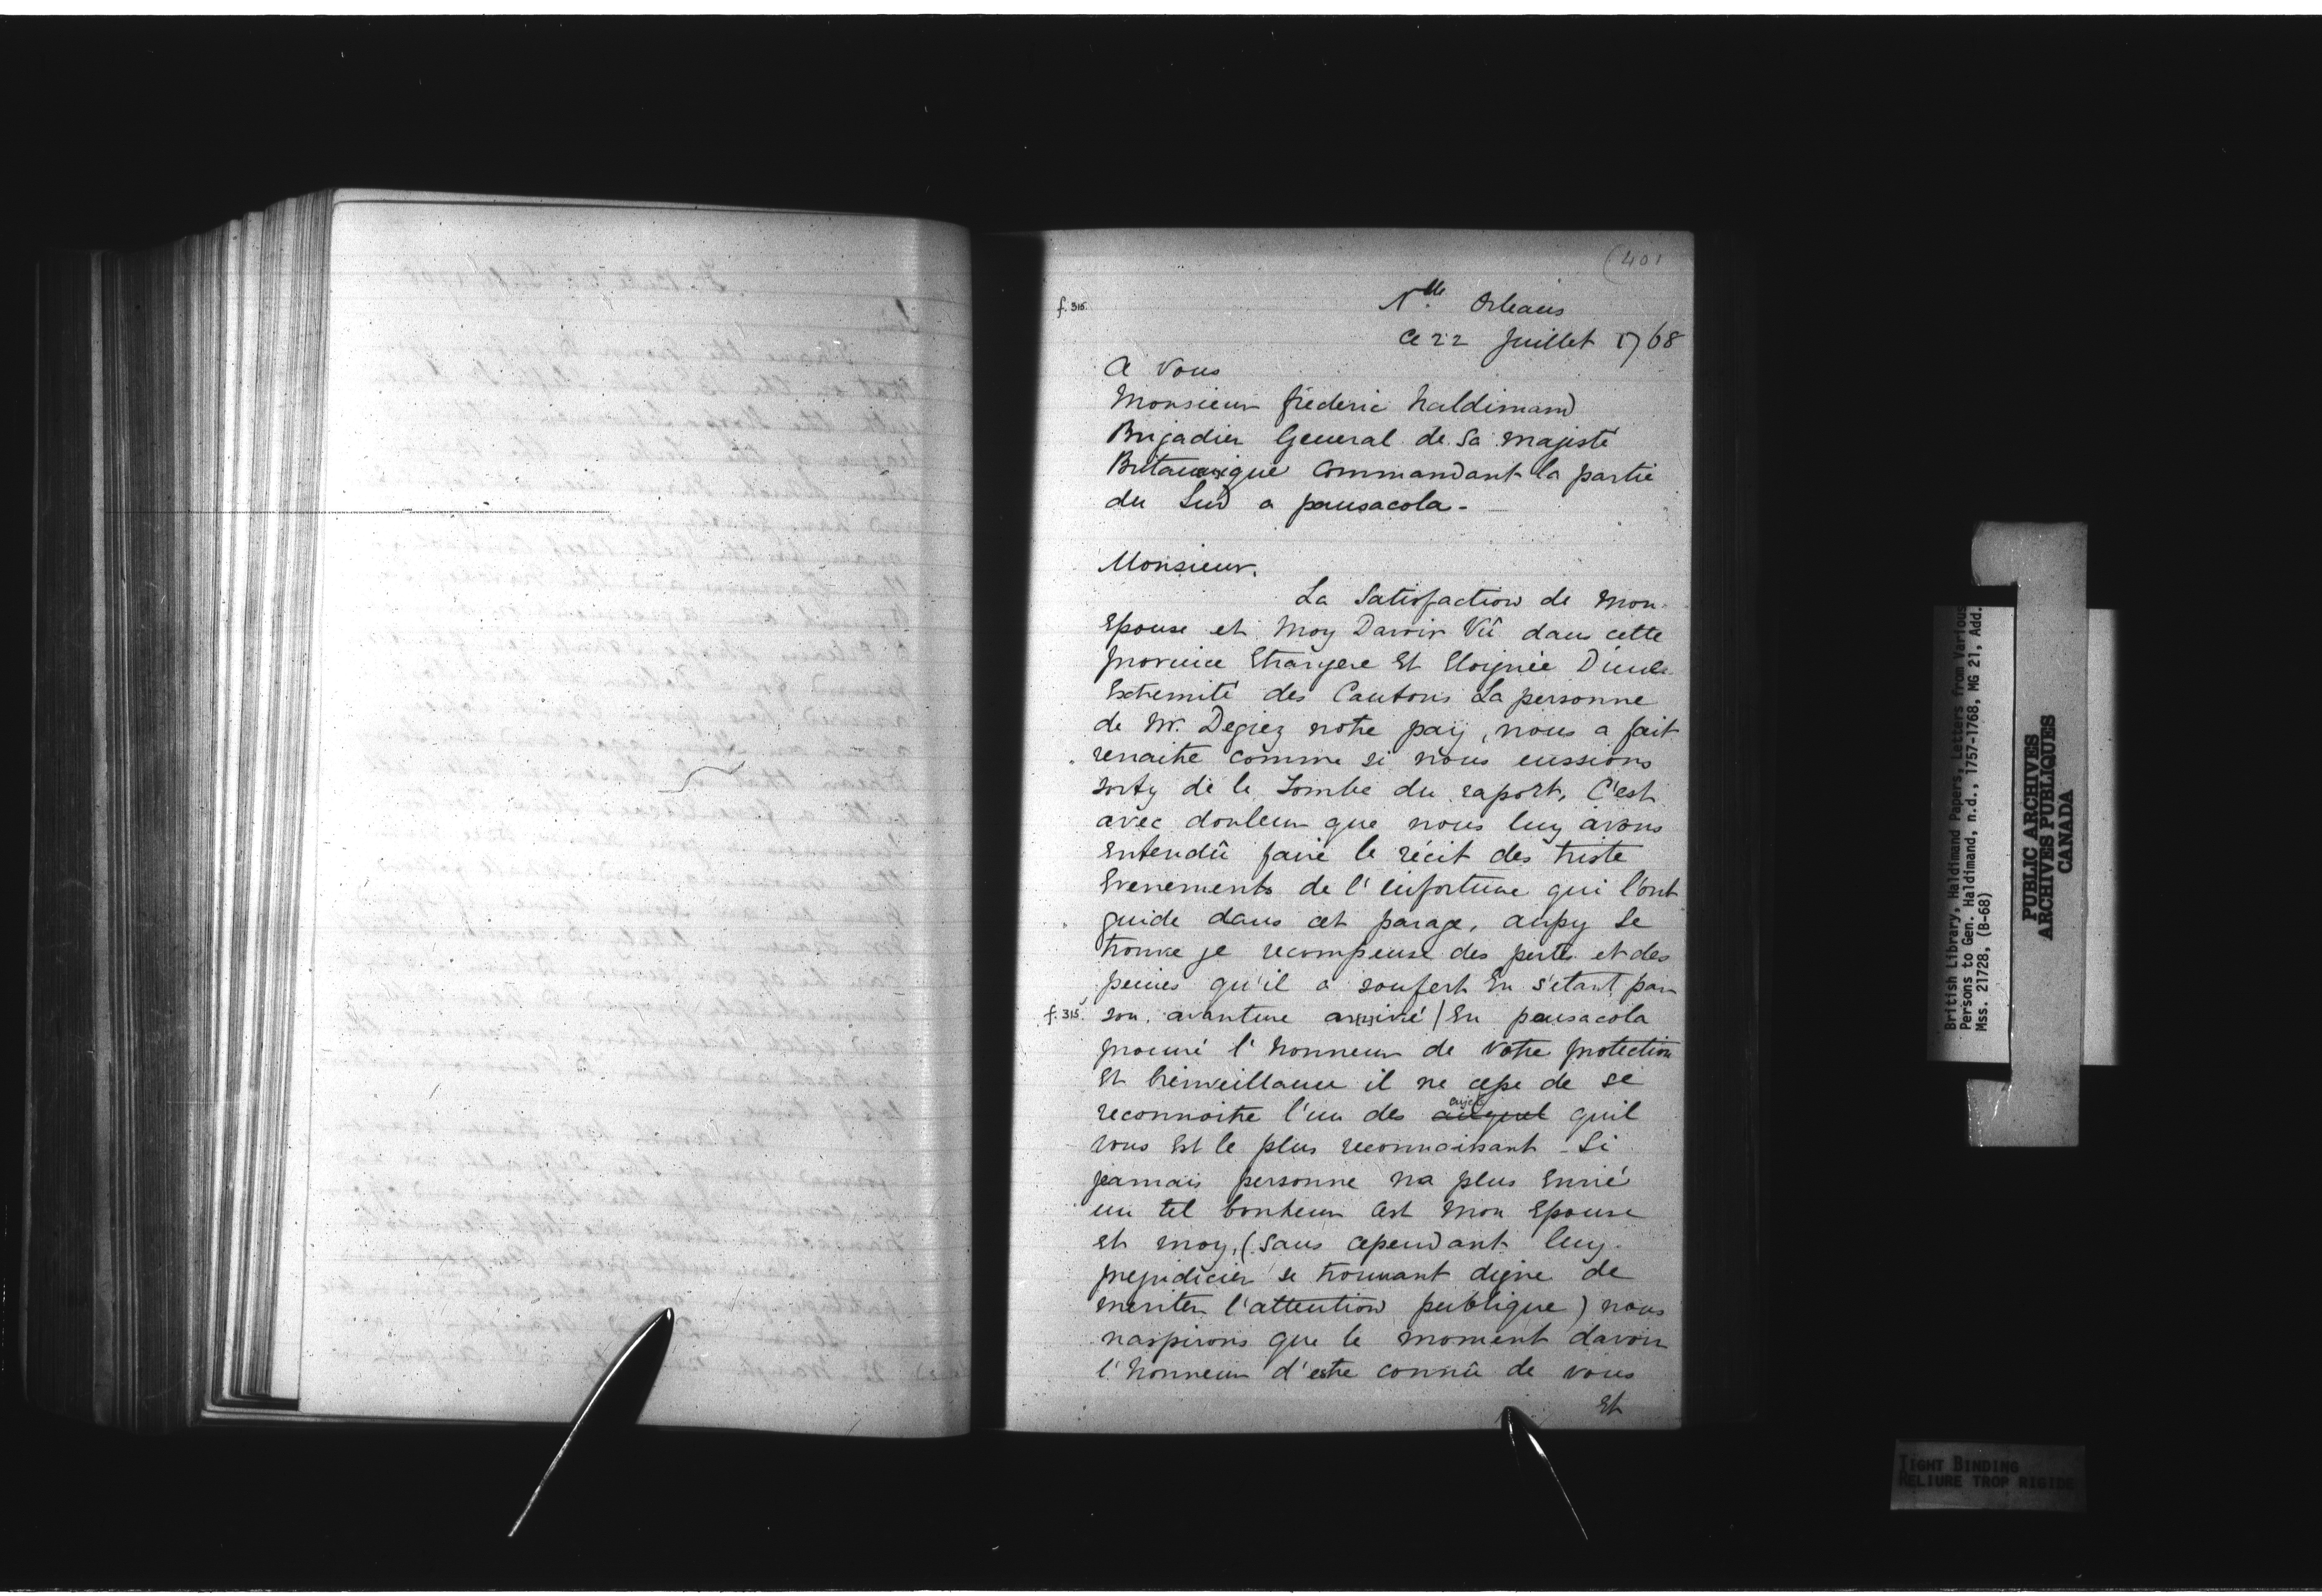 (401
f. 315.
Nlle Orleans
Ce 22 Juillet 1768
A Vous
Monsieur fréderic haldimand
Brigadier General de Sa majesté
Britannique Commandant la partie
du Sud a pansacola -
Monsieur.
La Satisfaction de Mon
Epouse et Moy Davoir Vû dans cette
province Etrangere Et Eloignée D'une
Extremité des Cantons La personne
de Mr. Degiez notre paij, nous a fait
renaitre comme si nous eussions
sorty de le Tombe du raport, C'est
avec douleur que nous luy avons
Entendû faire le récit des triste
Evenements de l'infortune qui l'ont
guide dans cet parage, aussy Se
trouve je recompense des perte et des
peines qu'il a soufert En s'etant par
f. 315 son avanture arrivé / En pensacola
procuré l'honneur de Votre protection
Et bienveillance il ne cesse de se
reconnoitre l'un des sujet quil
vous Est le plus reconnaissant - Si
jamais personne na plus Envié
un tel bonheur Cest Mon Epouse
et moy, (Sans cependant luy
prejudicier se trouvant digne de
meriter l'attention publique) nous
naspirons que le moment davoir
l'honneur d'estre connû de vous
Et
British Library, Haldimand Papers, Letters from Various
Persons to Gen. Haldimand, n.d., 1757-1768, MG 21, Add.
Mss. 21728, (B-68)
PUBLIC ARCHIVES
ARCHIVES PUBLIQUES
CANADA
TIGHT BINDING
RELIURE TROP RIGIDE